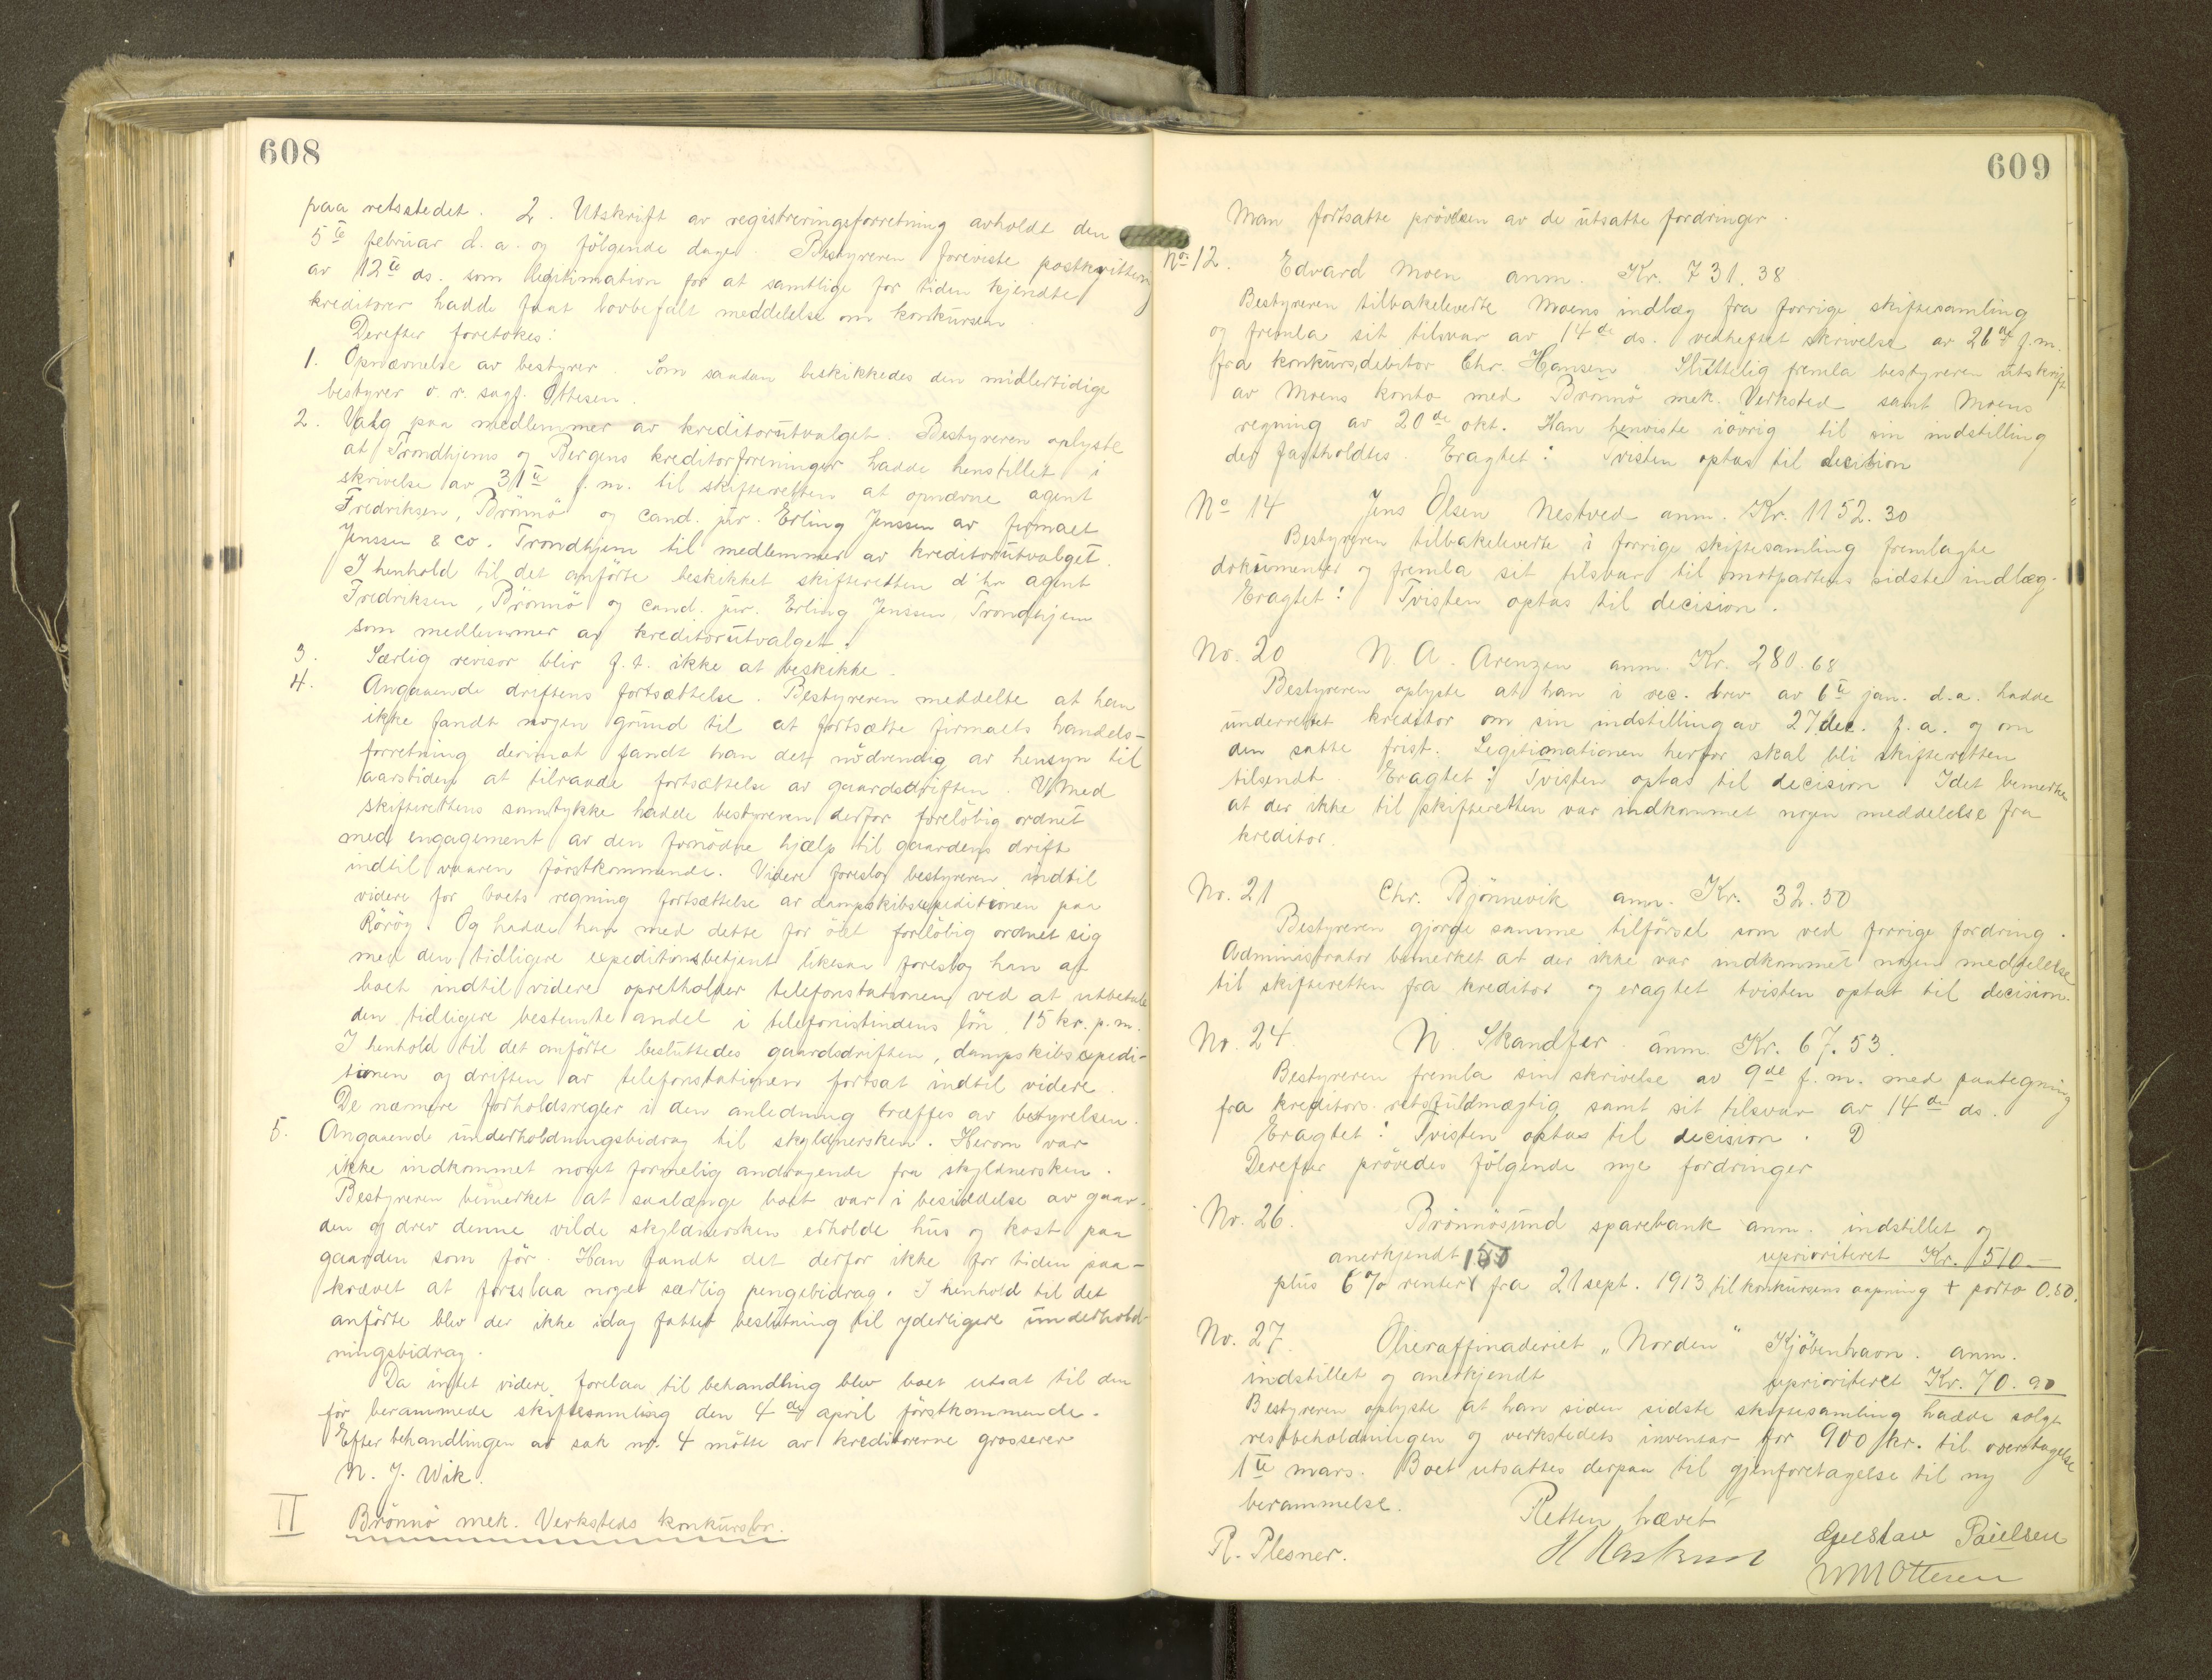 608
paa retsstedet. 2. Utskrift av registreringsforretning avholdt den
5te februar d.a. og følgende dage. Bestyreren foreviste postkvittering
av 12te ds. som legitimation for at samtlige for tiden kjendte
kreditorer hadde faat lovbefalt meddelelse om konkursen.
Derefter foretokes:
1. Opnævnelse av bestyrer. Som saadan beskikkedes den midlertidige
bestyrer o.r. sagf. Ottesen.
2. Valg paa medlemmer av kreditorutvalget. Bestyreren oplyste
at Trondhjems og Bergens kreditorforeninger hadde henstillet i
skrivelse av 31te f.m. til skifteretten at opnævne agent
Fredriksen, Brønnø og cand. jur. Erling Jenssen av firmaet
Jenssen & Co. Trondhjem til medlemmer av kreditorutvalget.
I henhold til det anførte beskikket skifteretten d'hr agent
Fredriksen, Brønnø og cand. jur. Erling Jenssen, Trondhjem
som medlemmer av kreditorutvalget.
3. Særlig revisor blir f.t. ikke at beskikke.
4. Angaaende driftens fortsættelse. Bestyreren meddelte at han
ikke fandt nogen grund til at fortsætte firmaets handels-
forretning derimot fandt han det nødvendig av hensyn til
aarstiden at tilraade fortsættelse av gaardsdriften. Med
skifterettens samtykke hadde bestyreren derfor foreløbig ordnet
med engagement av den fornødne hjælp til gaardens drift
indtil vaaren førstkommende. Videre foreslog bestyreren indtil
videre for boets regning fortsættelse av dampskibsexpeditionen paa
Rørøy. Og hadde han med dette for øiet foreløbig ordnet sig
med den tidligere expeditionsbetjent likesaa foreslog han at
boet indtil videre opretholder telefonstationen ved at utbetale
den tidligere bestemte andel i telefonistindens løn, 15 kr. p.m.
I henhold til det anførte besluttedes gaardsdriften, dampskibsexpedi-
tionen og driften av telefonstationen fortsat indtil videre.
De nærmere forholdsregler i den anledning træffes av bestyrelsen.
5. Angaaende underholdningsbidrag til skyldnersken. Herom var
ikke indkommet noget formelig andragende fra skyldnersken.
Bestyreren bemerket at saalænge boet var i besiddelse av gaar-
den og drev denne vilde skyldnersken erholde hus og kost paa
gaarden som før. Han fandt det derfor ikke for tiden paa-
krævet at foreslaa noget særlig pengebidrag. I henhold til det
anførte blev der ikke idag fattet beslutning til yderligere underhold-
ningsbidrag.
Da intet videre forelaa til behandling blev boet utsat til den
før berammede skiftesamling den 4de april førstkommende.
Efter behandlingen av sak nr. 4 møtte av kreditorerne grosserer
N. J. Wik.
II Brønnø mek. Verksteds konkursbo.
609
Man fortsatte prøvelsen av de utsatte fordringer.
No 12. Edvard Moen anm. Kr. 731.38
Bestyreren tilbakeleverte Moens indlæg fra forrige skiftesamling
og fremla sit tilsvar av 14de ds. vedheftet skrivelse av 26de f.m.
fra konkursdebitor Chr. Hansen. Sluttelig fremla bestyreren utskrift
av Moens konto med Brønnø mek. Verksted samt Moens
regning av 20de okt. Han henviste iøvrig til sin indstilling
der fastholdtes. Eragtet: Tvisten optas til decision
No 14 Jens Olsen Nestved anm. Kr. 1152.30
Bestyreren tilbakeleverte i forrige skiftesamling fremlagte
dokumenter og fremla sit tilsvar til motpartens sidste indlæg.
Eragtet: Tvisten optas til decision.
No. 20 N. A. Arenzen anm. Kr. 280.68
Bestyreren oplyste at han i rec. brev av 6te jan. d.a. hadde
underrettet kreditor om sin indstilling av 27 dec. f.a. og om
den satte frist. Legitimationen herfor skal bli skifteretten
tilsendt. Eragtet: Tvisten optas til decision. Idet bemerkes
at der ikke til skifteretten var indkommet nogen meddelelse fra
kreditor.
No. 21 Chr. Bjønnevik anm. Kr. 32.50
Bestyreren gjorde samme tilførsel som ved forrige fordring.
Administrator bemerket at der ikke var indkommet nogen meddelelse
til skifteretten fra kreditor og eragtet tvisten optat til decision.
No. 24. N. Skandfer anm. Kr. 67.53.
Bestyreren fremla sin skrivelse av 9de f.m. med paategning
fra kreditors retsfuldmægtig samt sit tilsvar av 14de ds.
Eragtet: Tvisten optas til decision. D
Derefter prøvedes følgende nye fordringer
Nr. 26. Brønnøsund sparebank anm. indstillet og
anerkjendt uprioriteret Kr. 510 —
plus 6% renter fra 21 sept. 1913 til konkursens aapning + porto 0.80.
No. 27. Olieraffinaderiet „Norden" Kjøbenhavn. anm.
indstillet og anerkjendt uprioriteret Kr. 70.90
Bestyreren oplyste at han siden sidste skiftesamling hadde solgt
restbeholdningen og verkstedets inventar for 900 kr. til overtagelse
1te mars. Boet utsattes derpaa til gjenforetagelse til ny
berammelse.
Retten hævet
R. Plesner. Gustav Paulsen
WM Ottesen